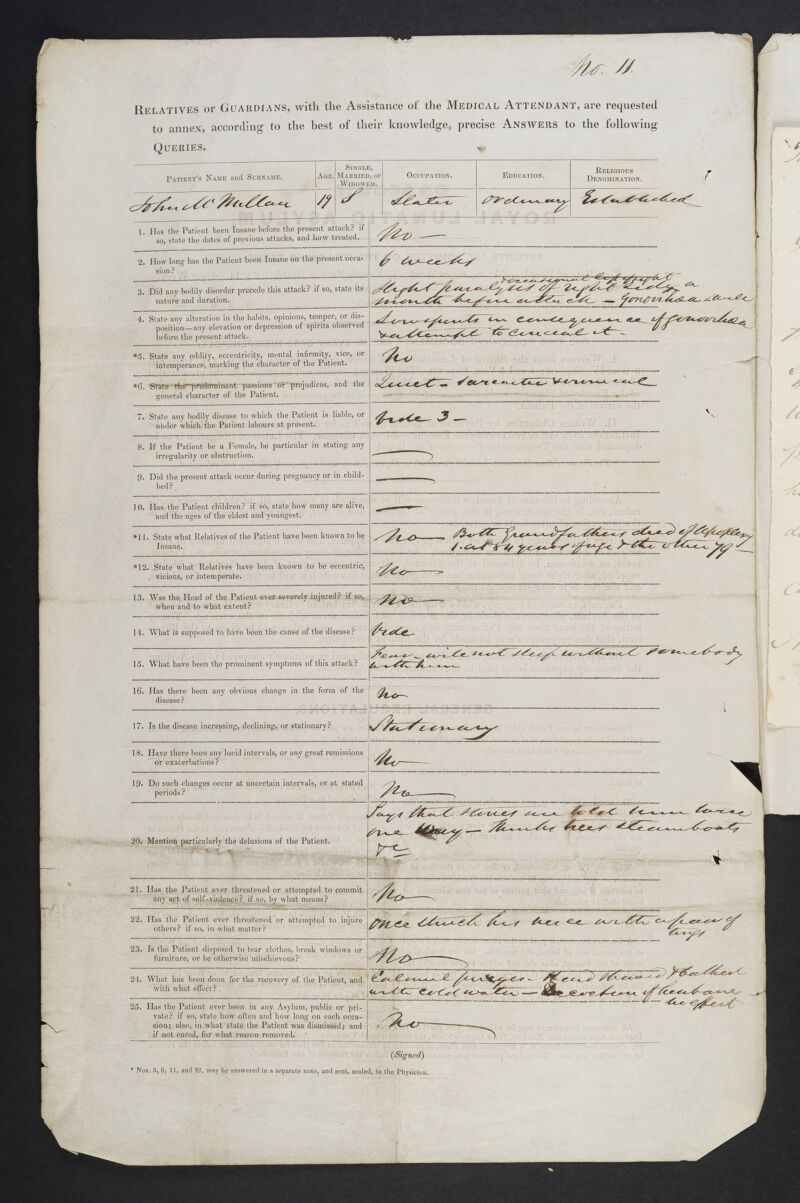 No. 11.
RELATIVES or GUARDIANS, with the Assistance of the MEDICAL ATTENDANT, are requested
to annex, according to the best of their knowledge, precise ANSWERS to the following
QUERIES.
PATIENT'S NAME and SURNAME. AGE. SINGLE, MARRIED, or WIDOWED. OCCUPATION. EDUCATION. RELIGIOUS DENOMINATION.
John McMillan 19 S Slater ordinary Established
1. Has the Patient been Insane before the present attack? if
so, state the dates of previous attacks, and how treated.
No
2. How long has the Patient been Insane on the present occa-
sion?
6 weeks
3. Did any bodily disorder precede this attack? if so, state its
nature and duration.
& occasional loss of sight
Slight paralysis of right side a
month before attack - gonorrhœa
4. State any alteration in the habits, opinions, temper, or dis-
position—any elevation or depression of spirits observed
before the present attack.
Low spirits in consequence of gonorrhœa
& attempt to conceal it -
*5. State any oddity, eccentricity, mental infirmity, vice, or
intemperance, marking the character of the Patient.
No
*6. State the predominant passions or prejudices, and the
general character of the Patient.
Quiet - sarcastic & ironical
7. State any bodily disease to which the Patient is liable, or
under which the Patient labours at present.
Vide 3 -
8. If the Patient be a Female, be particular in stating any
irregularity or obstruction.
9. Did the present attack occur during pregnancy or in child-
bed?
10. Has the Patient children? if so, state how many are alive,
and the ages of the eldest and youngest.
*11. State what Relatives of the Patient have been known to be
Insane.
No - Both Grandfathers died of Apoplexy
1. at 84 years of age & the other 79 -
*12. State what Relatives have been known to be eccentric,
vicious, or intemperate.
No
13. Was the Head of the Patient ever severely injured? if so,
when and to what extent?
No
14. What is supposed to have been the cause of the disease?
Vide
15. What have been the prominent symptoms of this attack?
Fear - will not sleep without somebody
with him
16. Has there been any obvious change in the form of the
disease?
No
17. Is the disease increasing, declining, or stationary?
Stationary
18. Have there been any lucid intervals, or any great remissions
or exacerbations?
No
19. Do such changes occur at uncertain intervals, or at stated
periods?
No
20. Mention particularly the delusions of the Patient.
Says that
one - thinks steamboats
&c
21. Has the Patient ever threatened or attempted to commit
any act of self-violence? if so, by what means?
No
22. Has the Patient ever threatened or attempted to injure
others? if so, in what matter?
Once struck his niece with a pair of
tongs
23. Is the Patient disposed to tear clothes, break windows or
furniture, or be otherwise mischievous?
No
24. What has been done for the recovery of the Patient, and
with what effect?
Calomel purges - Head shaved & bathed
with cold water - Decoction of henbane
no effect
25. Has the Patient ever been in any Asylum, public or pri-
vate? if so, state how often and how long on each occa-
sion; also, in what state the Patient was dismissed; and
if not cured, for what reason removed.
No
(Signed)
* Nos. 5, 6, 11, and 12, may be answered in a separate note, and sent, sealed, to the Physician.